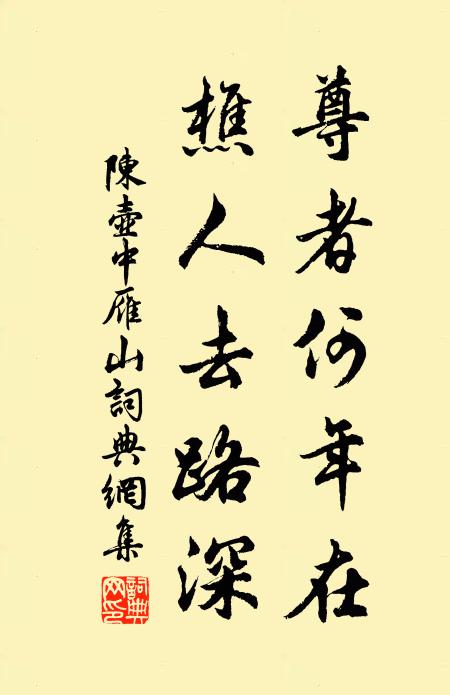 尊者何年在
樵人去路深
陳壺中雁山詞典網集
詞典網印